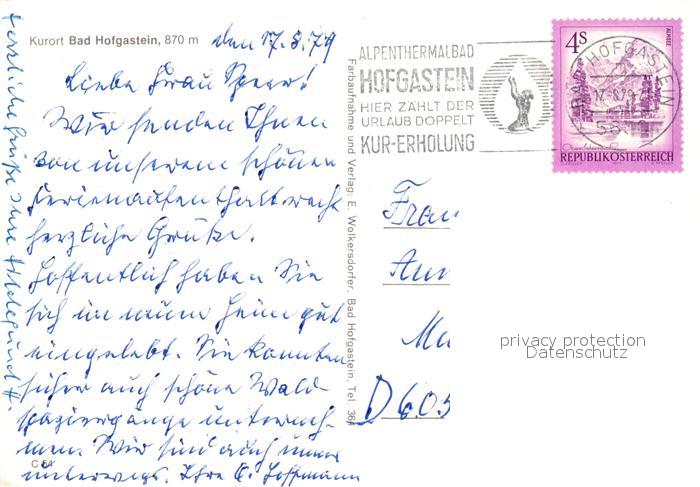 Kurort Bad Hofgastein, 870 m
den 17.8.79
Liebe Frau Speer!
Wir senden Ihnen
von unserem schönen
Ferienaufenthalt recht
herzliche Grüße.
Hoffentlich haben Sie
sich im neuen Heim gut
eingelebt. Sie konnten
sicher auch schöne Wald-
spaziergänge unterneh-
men. Wir sind auch immer
unterwegs. Ihre E. Hoffmann
C 54
herzliche Grüße Ihre Hildegund H.
Farbaufnahme und Verlag: E. Wolkersdorfer, Bad Hofgastein, Tel. 364
ALPENTHERMALBAD
HOFGASTEIN
HIER ZÄHLT DER
URLAUB DOPPELT
KUR-ERHOLUNG
4S
ALMSEE
BAD HOFGASTEIN
17.-8.79
REPUBLIK ÖSTERREICH
Frau
D 605
privacy protection
Datenschutz